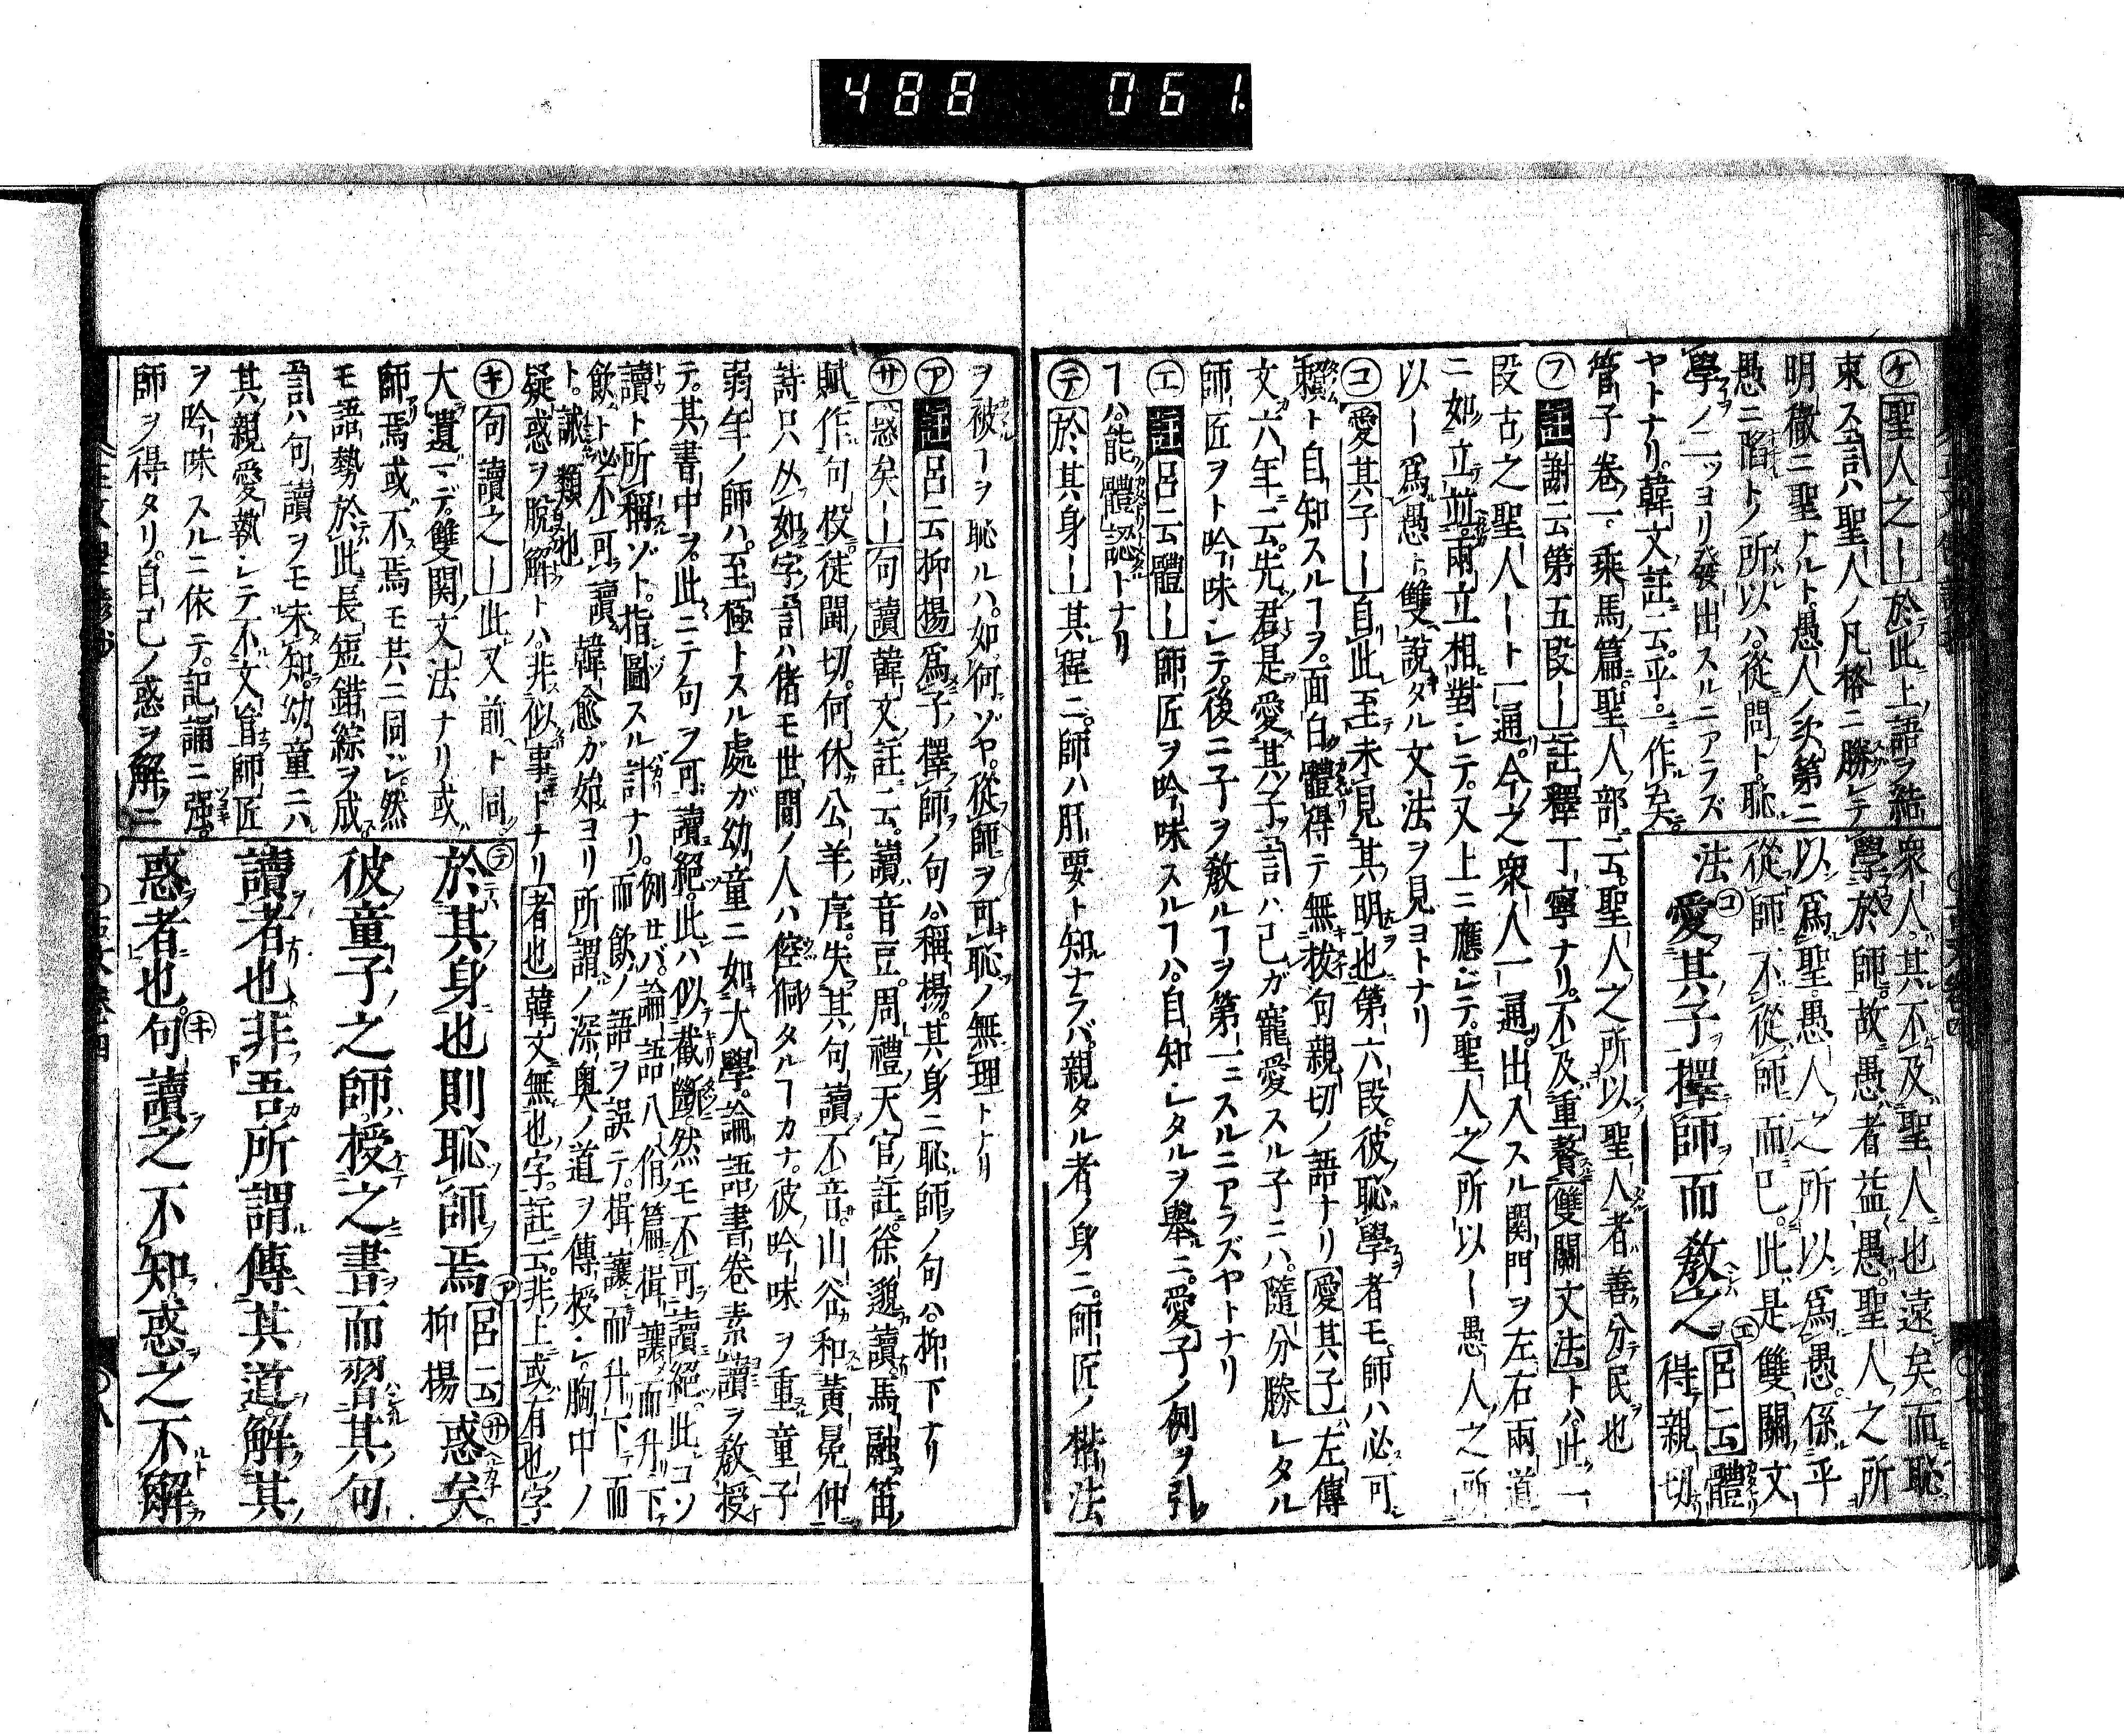 488 061
㋘聖人之—於此上語ヲ結
束ス言ハ聖人ノ凡格ニ勝レテ
明徹ニ聖ナルト愚人ノ次第ニ
愚ニ陷トノ所以ハ從問ト恥
學ノ二ツヨリ發出スルニアラズ
ヤトナリ韓文註云乎一作矣
衆人其不及聖人也遠矣而恥
學於師故愚者益愚聖人之所
以爲聖愚人之所以爲愚係乎
從師不從師而已此是雙關文
法㋙愛其子擇師而敎之㋓呂云體得親切
管子卷一乘馬篇聖人部云聖人之所以聖人者善分民也
㋫註謝云第五段—註釋丁寧ナリ不及重贅雙關文法トハ此一
段古之聖人—ト一通今之衆人一通出入スル関門ヲ左右兩道
ニ如立並兩立相對シテ又上ニ應ジテ聖人之所以—愚人之所
以—爲愚ト雙說タル文法ヲ見ヨトナリ
㋙愛其子—自此至未見其明也第六段彼恥學者モ師ハ必可
賴ト自知スルヿヲ面白體得テ無核句親切ノ語ナリ愛其子—左傳
文六年云先君是愛其子言ハ己ガ寵愛スル子ニハ隨分勝レタル
師匠ヲト吟味シテ後ニ子ヲ敎ルヿヲ第一ニスルニアラズヤトナリ
㋓註呂云體—師匠ヲ吟味スルヿハ自知シタルヲ舉ニ愛子ノ例ヲ引
ヿハ能體認トナリ
㋢於其身—其程ニ師ハ肝要ト知ナラバ親タル者ノ身ニ師匠ノ楷法
ヲ被ヿヲ恥ルハ如何ゾヤ從師ヲ可恥ノ無理トナリ
㋐註呂云抑揚爲子擇師ノ句ハ稱揚其身ニ恥師ノ句ハ抑下ナリ
㋚惑矣—句讀韓文註云讀音豆周禮天官註徐邈讀馬融笛
賦作句投徒鬪切何休公羊序失其句讀不音山谷和黃晃仲
詩只从如字言ハ偖モ世間ノ人ハ倥侗タルヿカナ彼吟味ヲ重童子
弱年ノ師ハ至極トスル處ガ幼童ニ如大學論語書卷素讀ヲ敎授
テ其書中ヲ此ニテ句ヲ可讀絕此ハ似截斷然モ不可讀絕此コソ
讀ト所稱ゾト指圖スル計ナリ例セバ論語八佾篇揖讓而升下
飮ト必不可讀而飮ノ語ヲ誤テ揖讓而升下而
ト誠類也韓愈ガ始ヨリ所謂ノ深奧ノ道ヲ傳授シ胸中ノ
疑惑ヲ脫解トハ非似事トナリ者也韓文無也字註云非上或有也字
㋖句讀之—此又前ト同
大遺ニデ雙関文法ナリ或
師焉或不焉モ其ニ同ジ然
モ語勢於此長短錯綜ヲ成
言ハ句讀ヲモ未知幼童ニハ
其親愛執シテ不文盲師匠
ヲ吟味スルニ依テ記誦ニ强
師ヲ得タリ自己ノ惑ヲ解ニ
㋢於其身也則恥師焉㋐呂云抑揚㋚惑矣
彼童子之師授之書而習其句
讀者也非吾所謂傳其道解其
惑者也㋖句讀之不知惑之不解